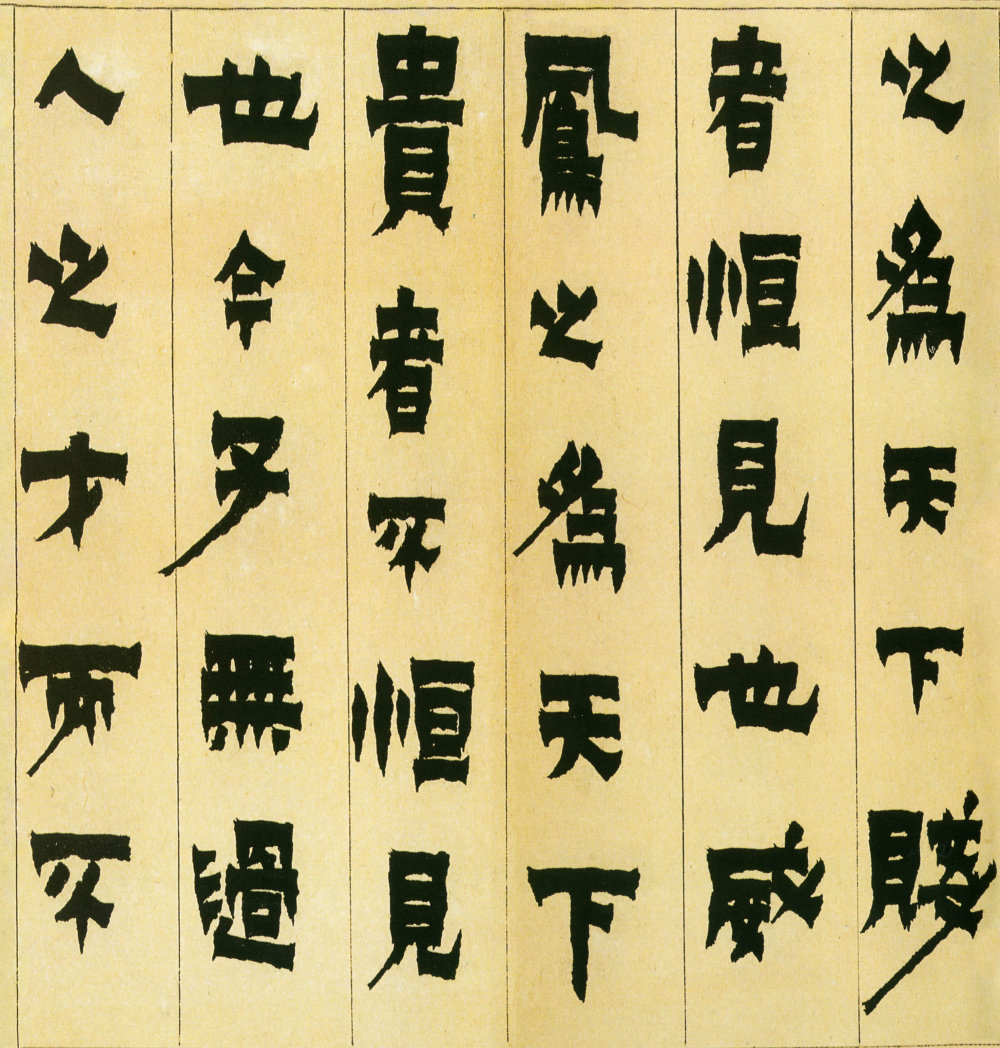 之為天下賤
者恒見也威
鳳之為天下
貴者不恒見
也今子無過
人之才而不